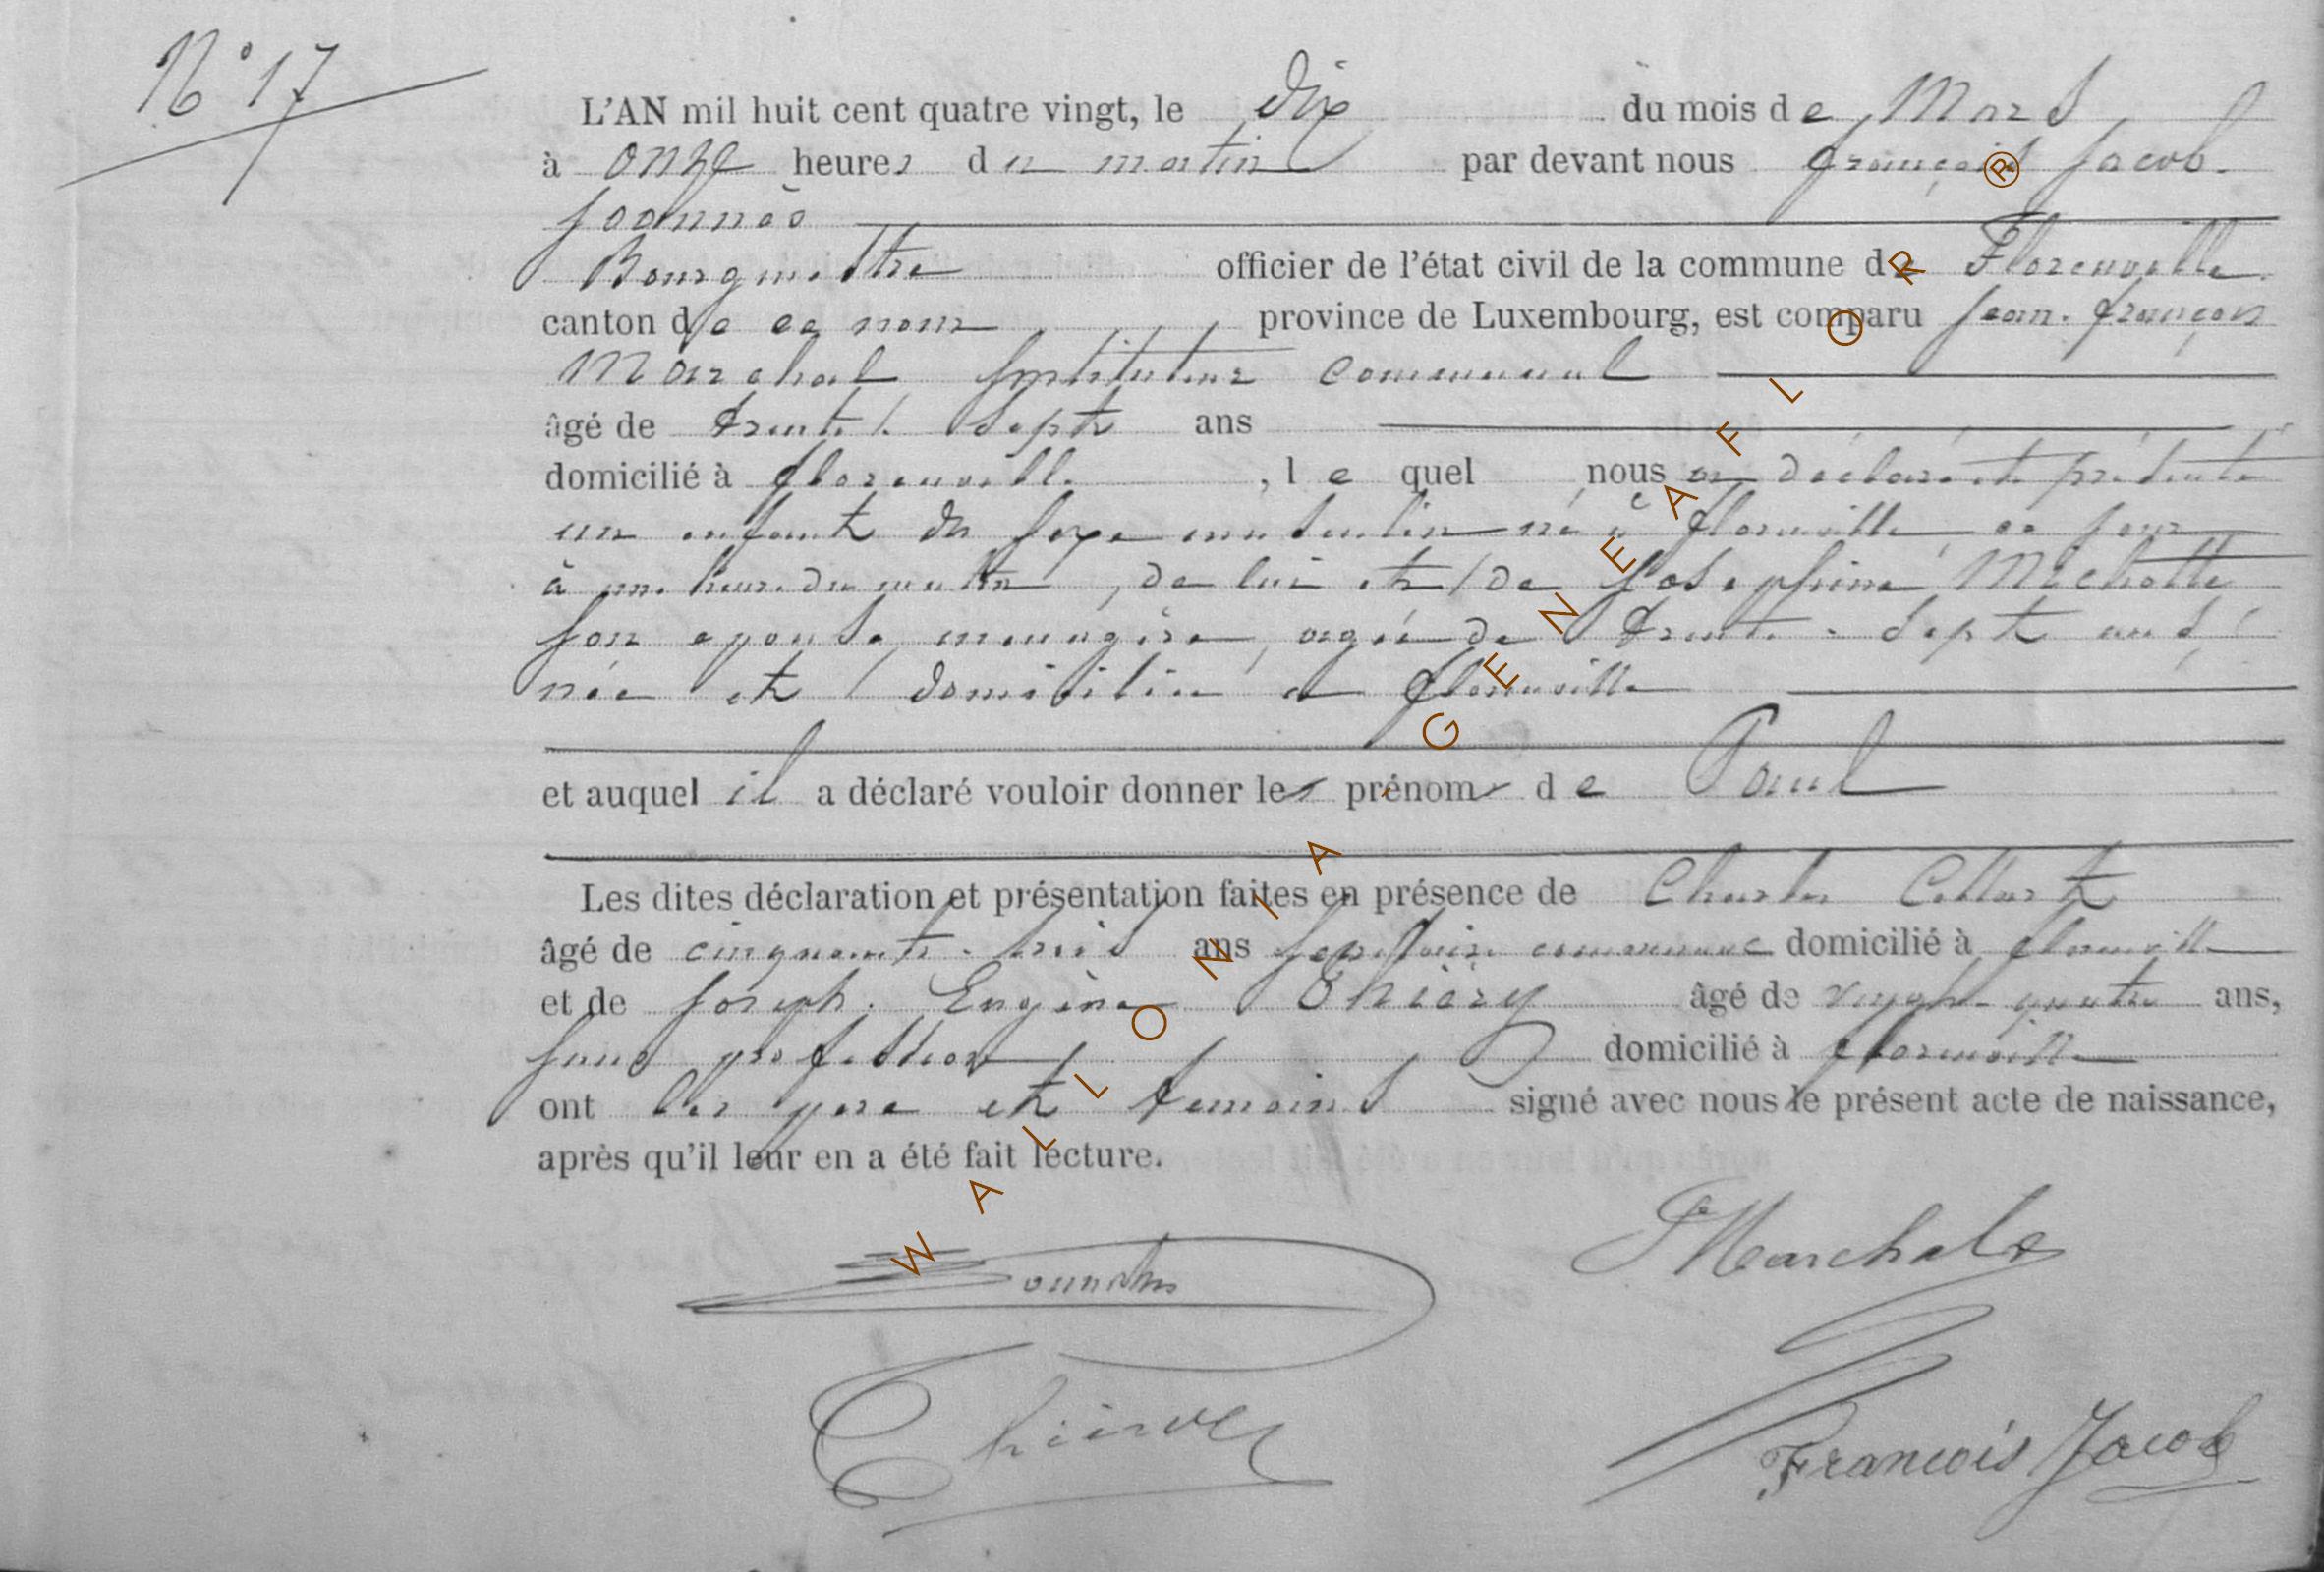 N° 17
L'AN mil huit cent quatre vingt, le Dix du mois de Mars
à onze heures du matin par devant nous François Jacob.
Joannès
Bourgmestre officier de l'état civil de la commune de Florenville.
canton de ce nom province de Luxembourg, est comparu Jean-François
Marchal Instituteur communal
âgé de trente sept ans
domicilié à florenville, le quel nous a déclaré et présenté
un enfant du sexe masculin né à florenville ce jour
à une heure du matin, de lui et de Joséphine Michotte
son épouse, ménagère, agée de trente-sept ans,
née et domiciliée à florenville
et auquel il a déclaré vouloir donner le prénom de Paul
Les dites déclaration et présentation faites en présence de Charles
âgé de cinquante-trois ans domicilié à florenville
et de Joseph. Eugène Thiéry âgé de vingt-quatre ans,
sans profession domicilié à florenville
ont les père et témoins signé avec nous le présent acte de naissance,
après qu'il leur en a été fait lecture.
Marchal
Thiéry
François Jacob
WALLONIA GENEAFLOR ®